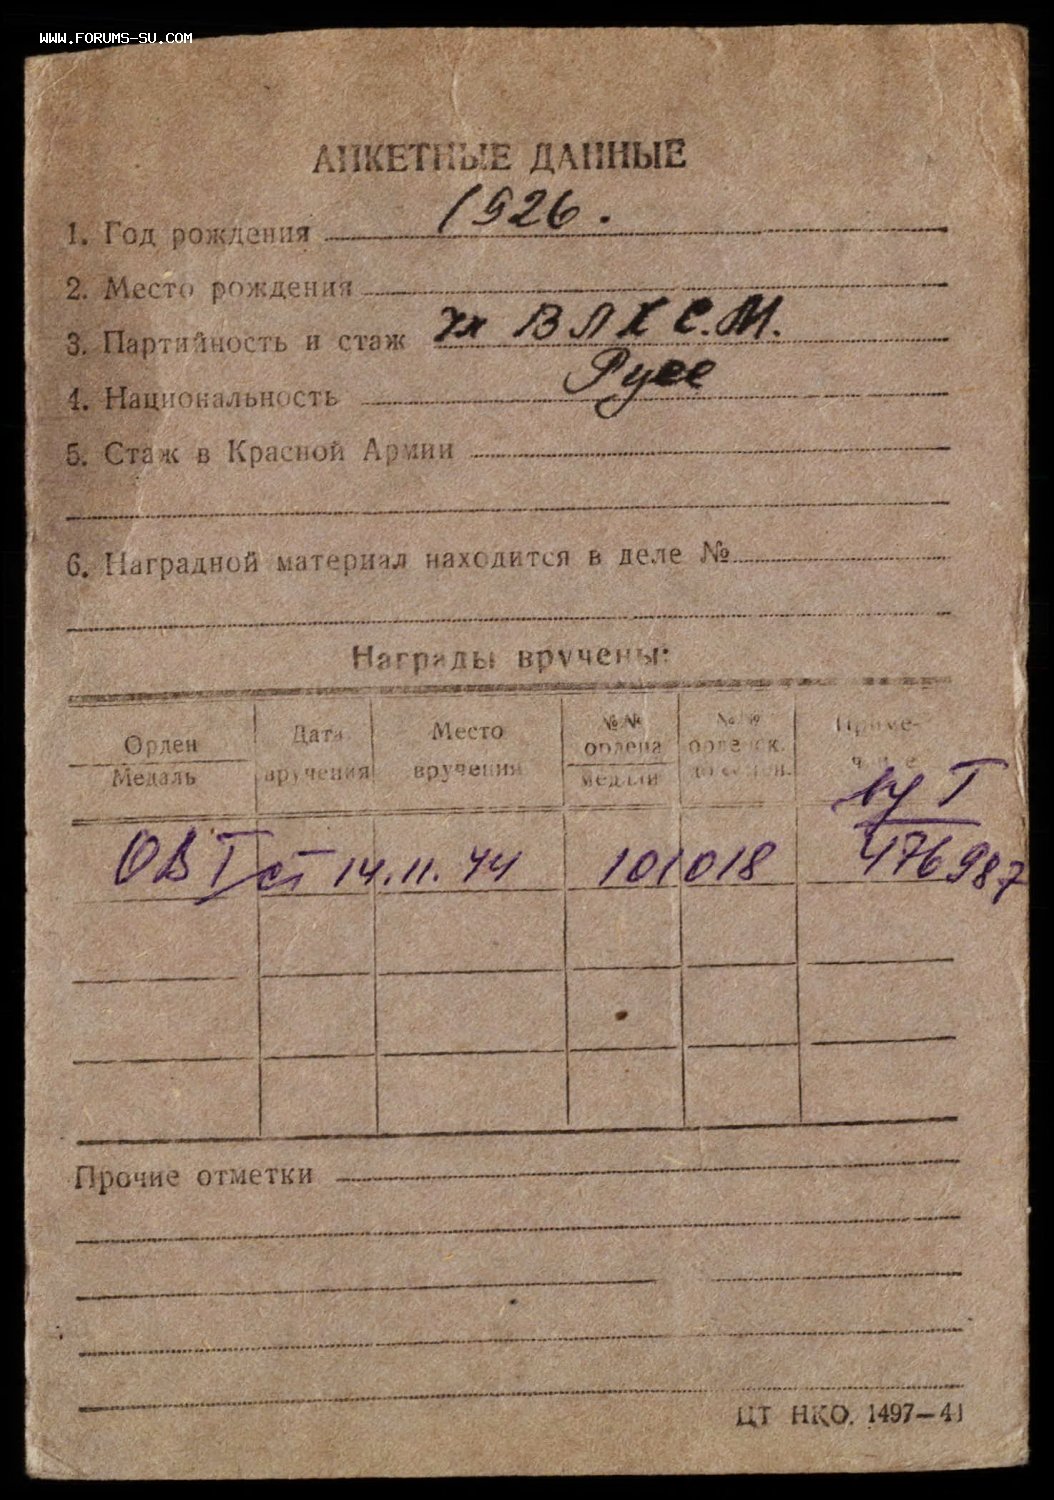 WWW.FORUMS-SU.COM
АНКЕТНЫЕ ДАННЫЕ
1. Год рождения 1926.
2. Место рождения
3. Партийность и стаж чл ВЛКС.М.
4. Национальность Русс
5. Стаж в Красной Армии
6. Наградной материал находится в деле №
Награды вручены:
Орден Медаль
Дата вручения
Место вручения
№№ ордена медали
№№ орденск. докумен.
Приме-чание
ОВ I ст 14.11.44 101018 476987
Прочие отметки
ЦТ НКО. 1497—41